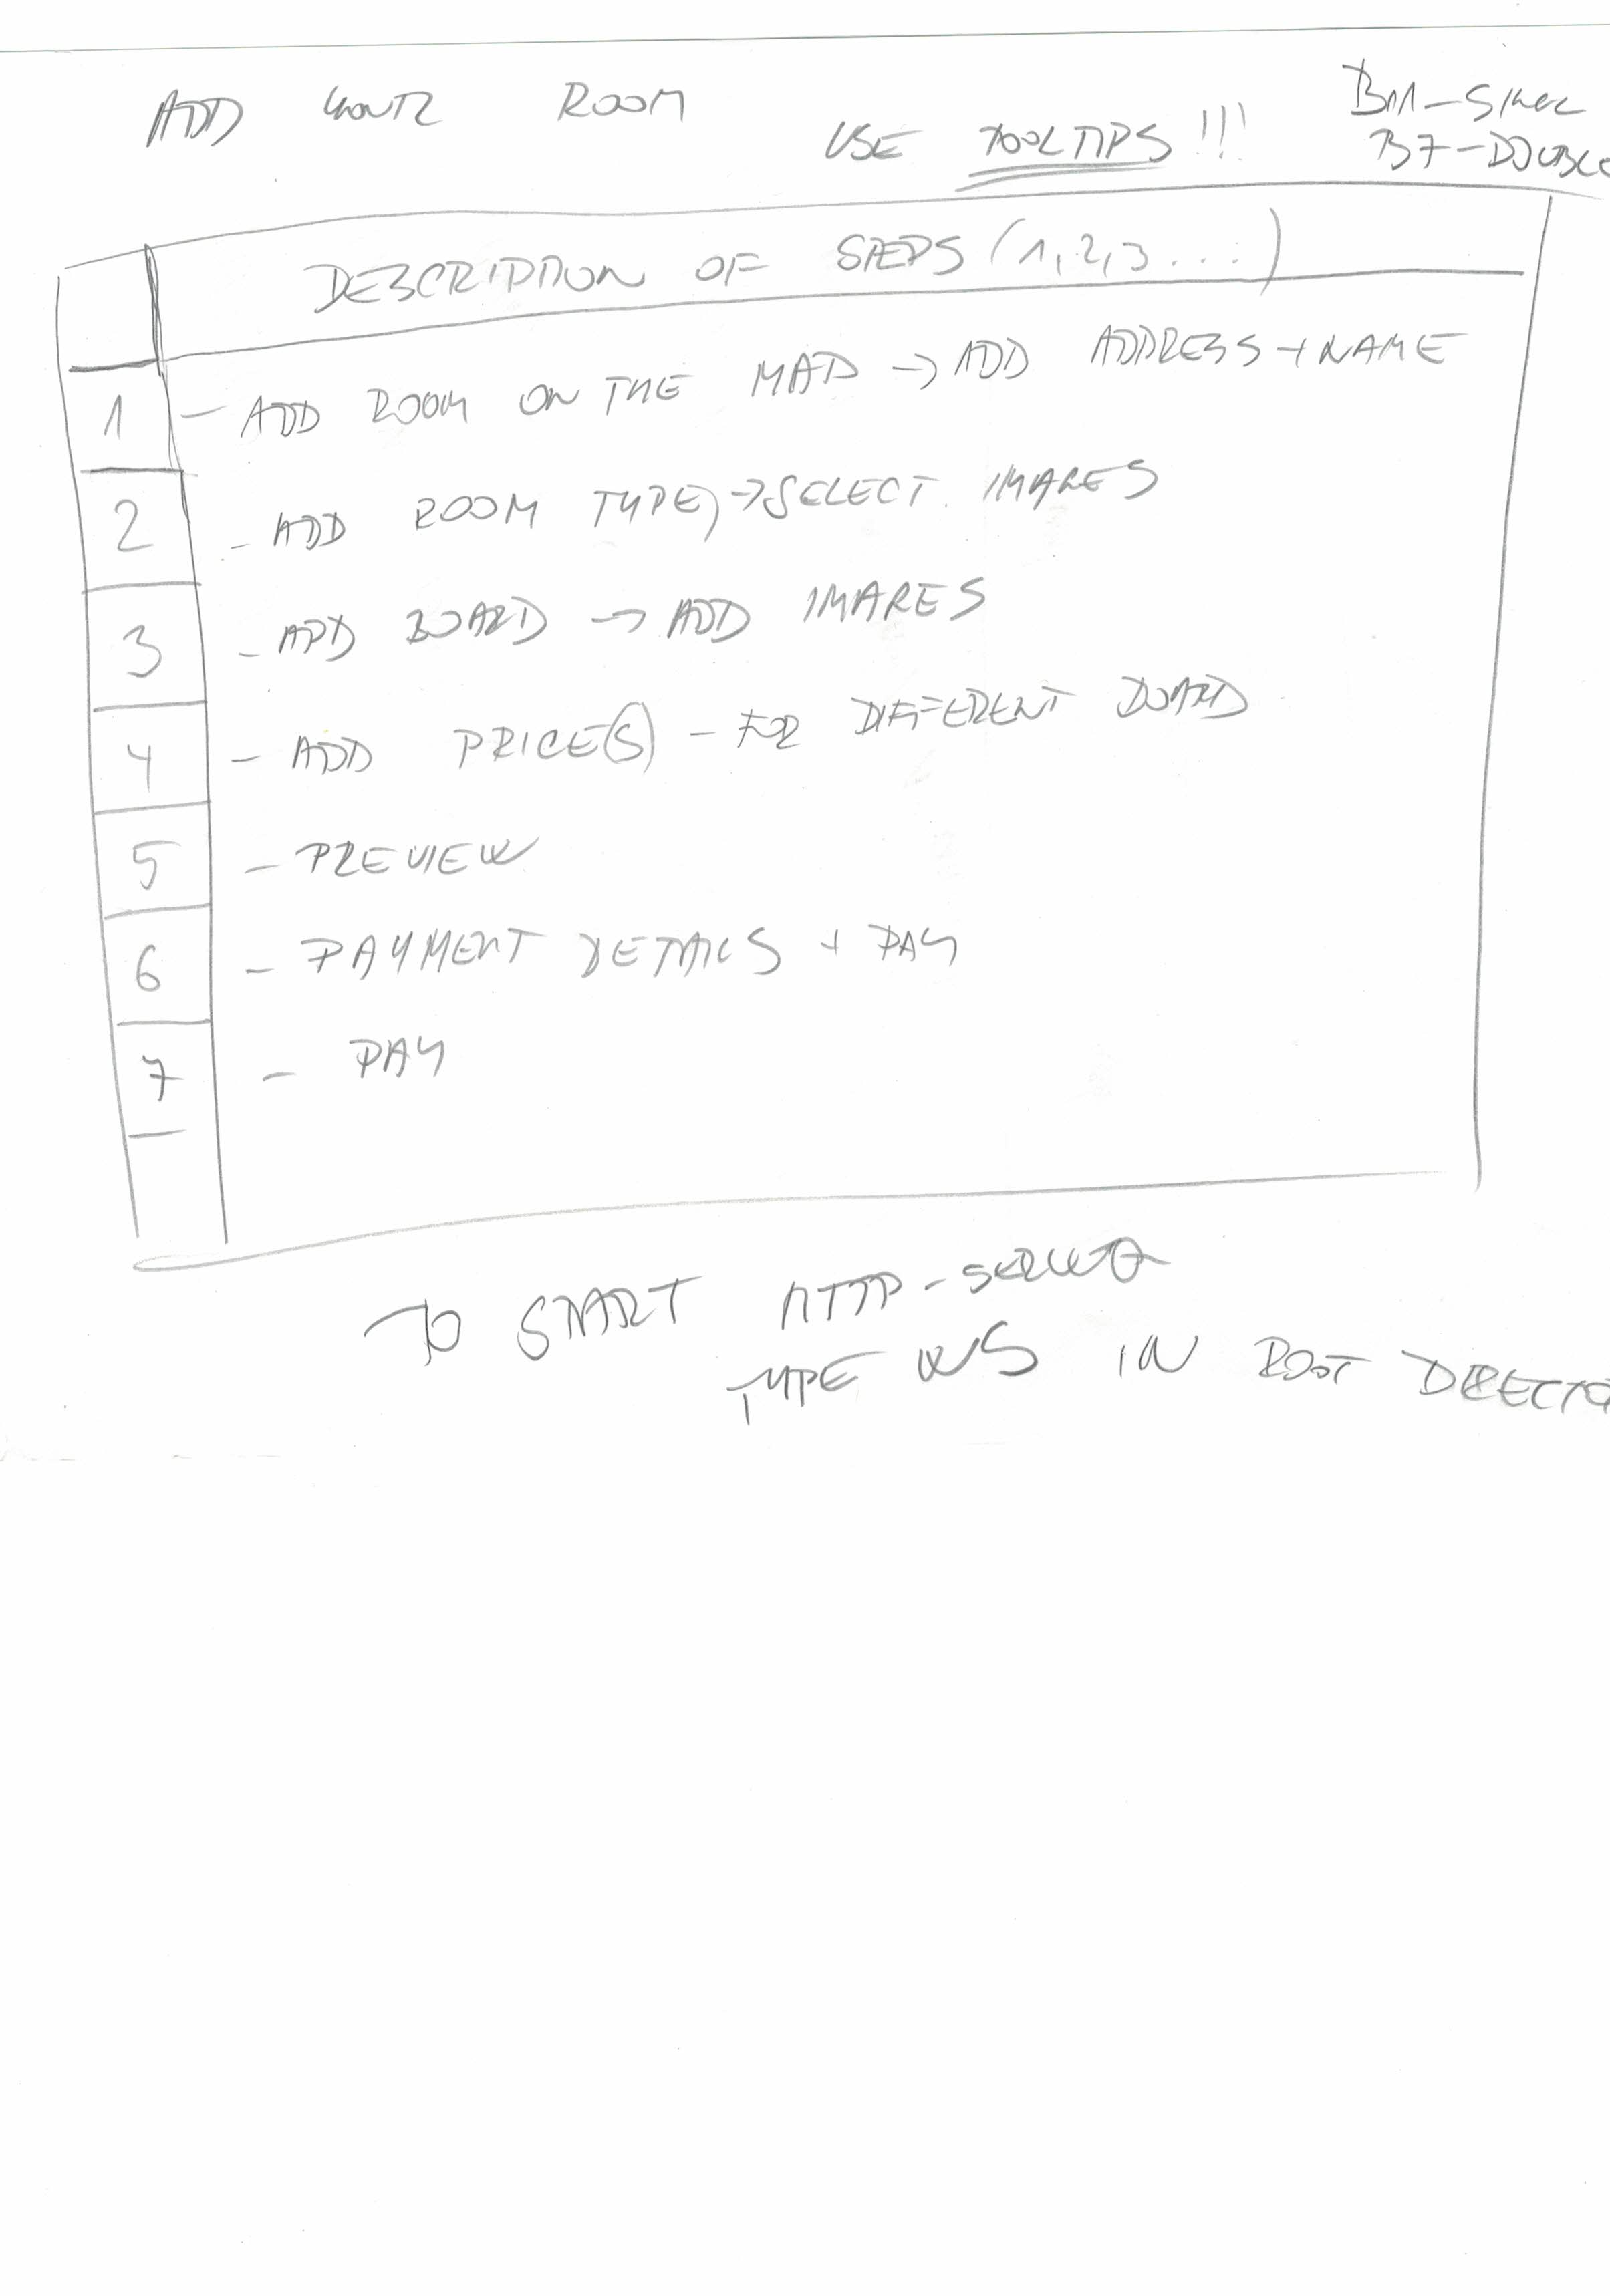 ADD YOUR ROOM
USE TOOLTIPS!!!
B11-SINGL
B7-DOUBLE
DESCRIPTION OF STEPS (1,2,3...)
1 - ADD ROOM ON THE MAP → ADD ADDRESS + NAME
2 - ADD ROOM TYPE) → SELECT IMAGES
3 - ADD BOARD → ADD IMAGES
4 - ADD PRICE(S) - FOR DIFFERENT BOARD
5 - PREVIEW
6 - PAYMENT DETAILS + PAY
7 - PAY
TO START HTTP-SERVER
TYPE WS IN ROOT DIRECTO